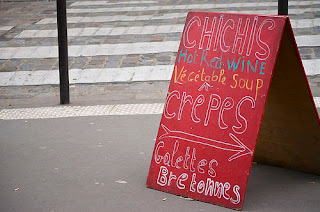 CHICHIS
Hot Red WINE
Vegetable Soup
crêpes
Galettes
Bretonnes